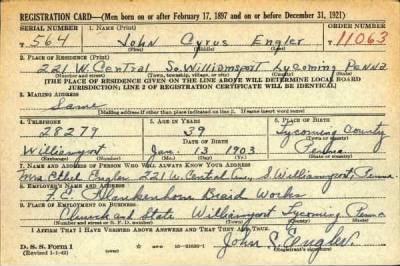 REGISTRATION CARD—(Men born on or after February 17, 1897 and on or before December 31, 1921)
SERIAL NUMBER 1. NAME (Print) ORDER NUMBER
T 564 John Cyrus Engler T 11063
(First) (Middle) (Last)
2. PLACE OF RESIDENCE (Print)
221 W. Central So. Williamsport Lycoming Penna
(Number and street) (Town, township, village, or city) (County) (State)
[THE PLACE OF RESIDENCE GIVEN ON THE LINE ABOVE WILL DETERMINE LOCAL BOARD
JURISDICTION; LINE 2 OF REGISTRATION CERTIFICATE WILL BE IDENTICAL]
3. MAILING ADDRESS
Same
[Mailing address if other than place indicated on line 2. If same insert word same]
4. TELEPHONE 5. AGE IN YEARS 6. PLACE OF BIRTH
28279 39 Lycoming County
DATE OF BIRTH (Town or county)
Williamsport Jan. 13 1903 Penna
(Exchange) (Number) (Mo.) (Day) (Yr.) (State or country)
7. NAME AND ADDRESS OF PERSON WHO WILL ALWAYS KNOW YOUR ADDRESS
Mrs Ethel Engler 221 W. Central Ave, S. Williamsport, Penna.
8. EMPLOYER'S NAME AND ADDRESS
Blankenhorn Braid Works
9. PLACE OF EMPLOYMENT OR BUSINESS
Church and State Williamsport Lycoming Penna
(Number and street or R. F. D. number) (Town) (County) (State)
I AFFIRM THAT I HAVE VERIFIED ABOVE ANSWERS AND THAT THEY ARE TRUE.
D. S. S. Form 1
(Revised 1-1-42) (over)
John C. Engler